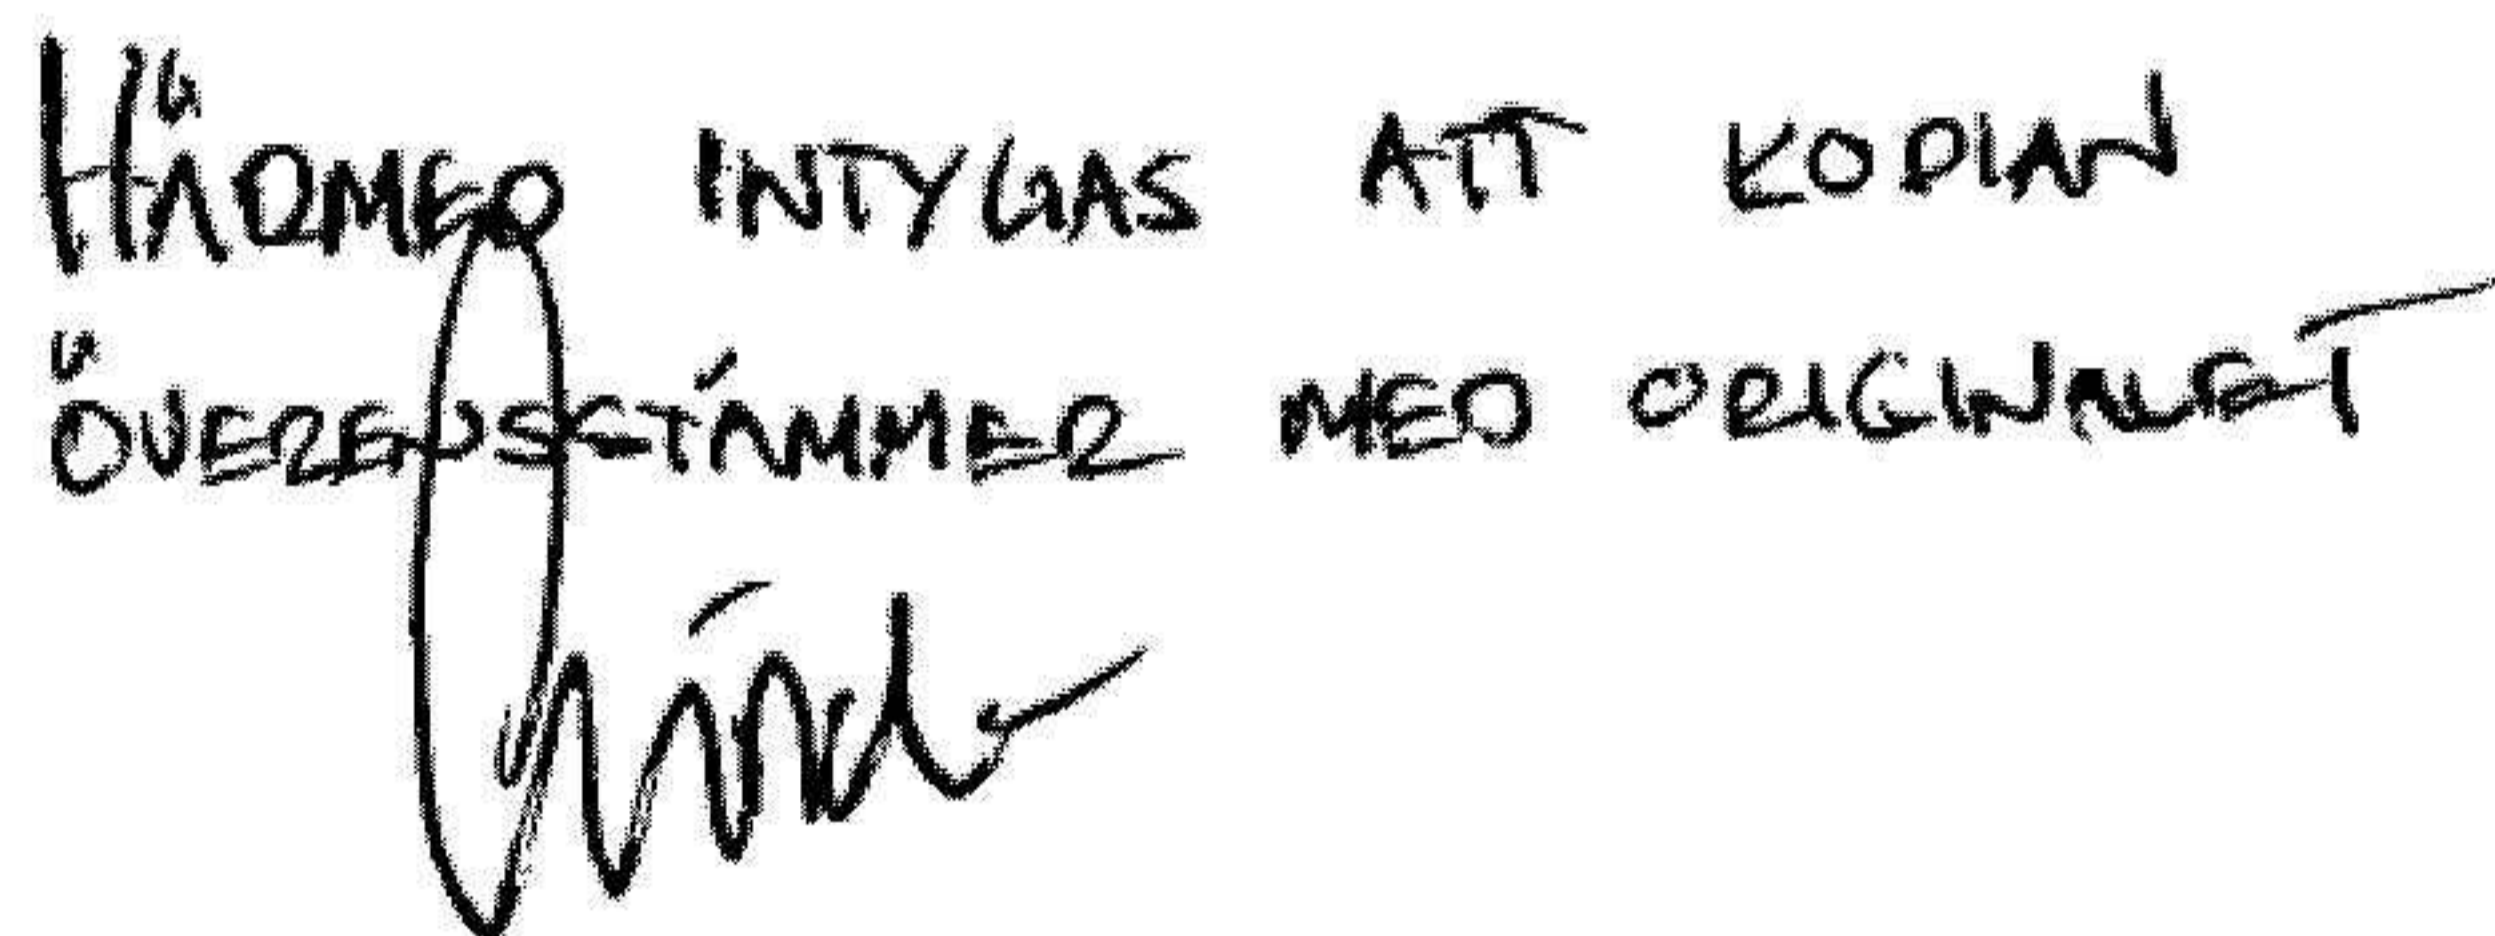 HÄRMED INTYGAS ATT KOPIAN
ÖVERENSSTÄMMER MED ORIGINALET